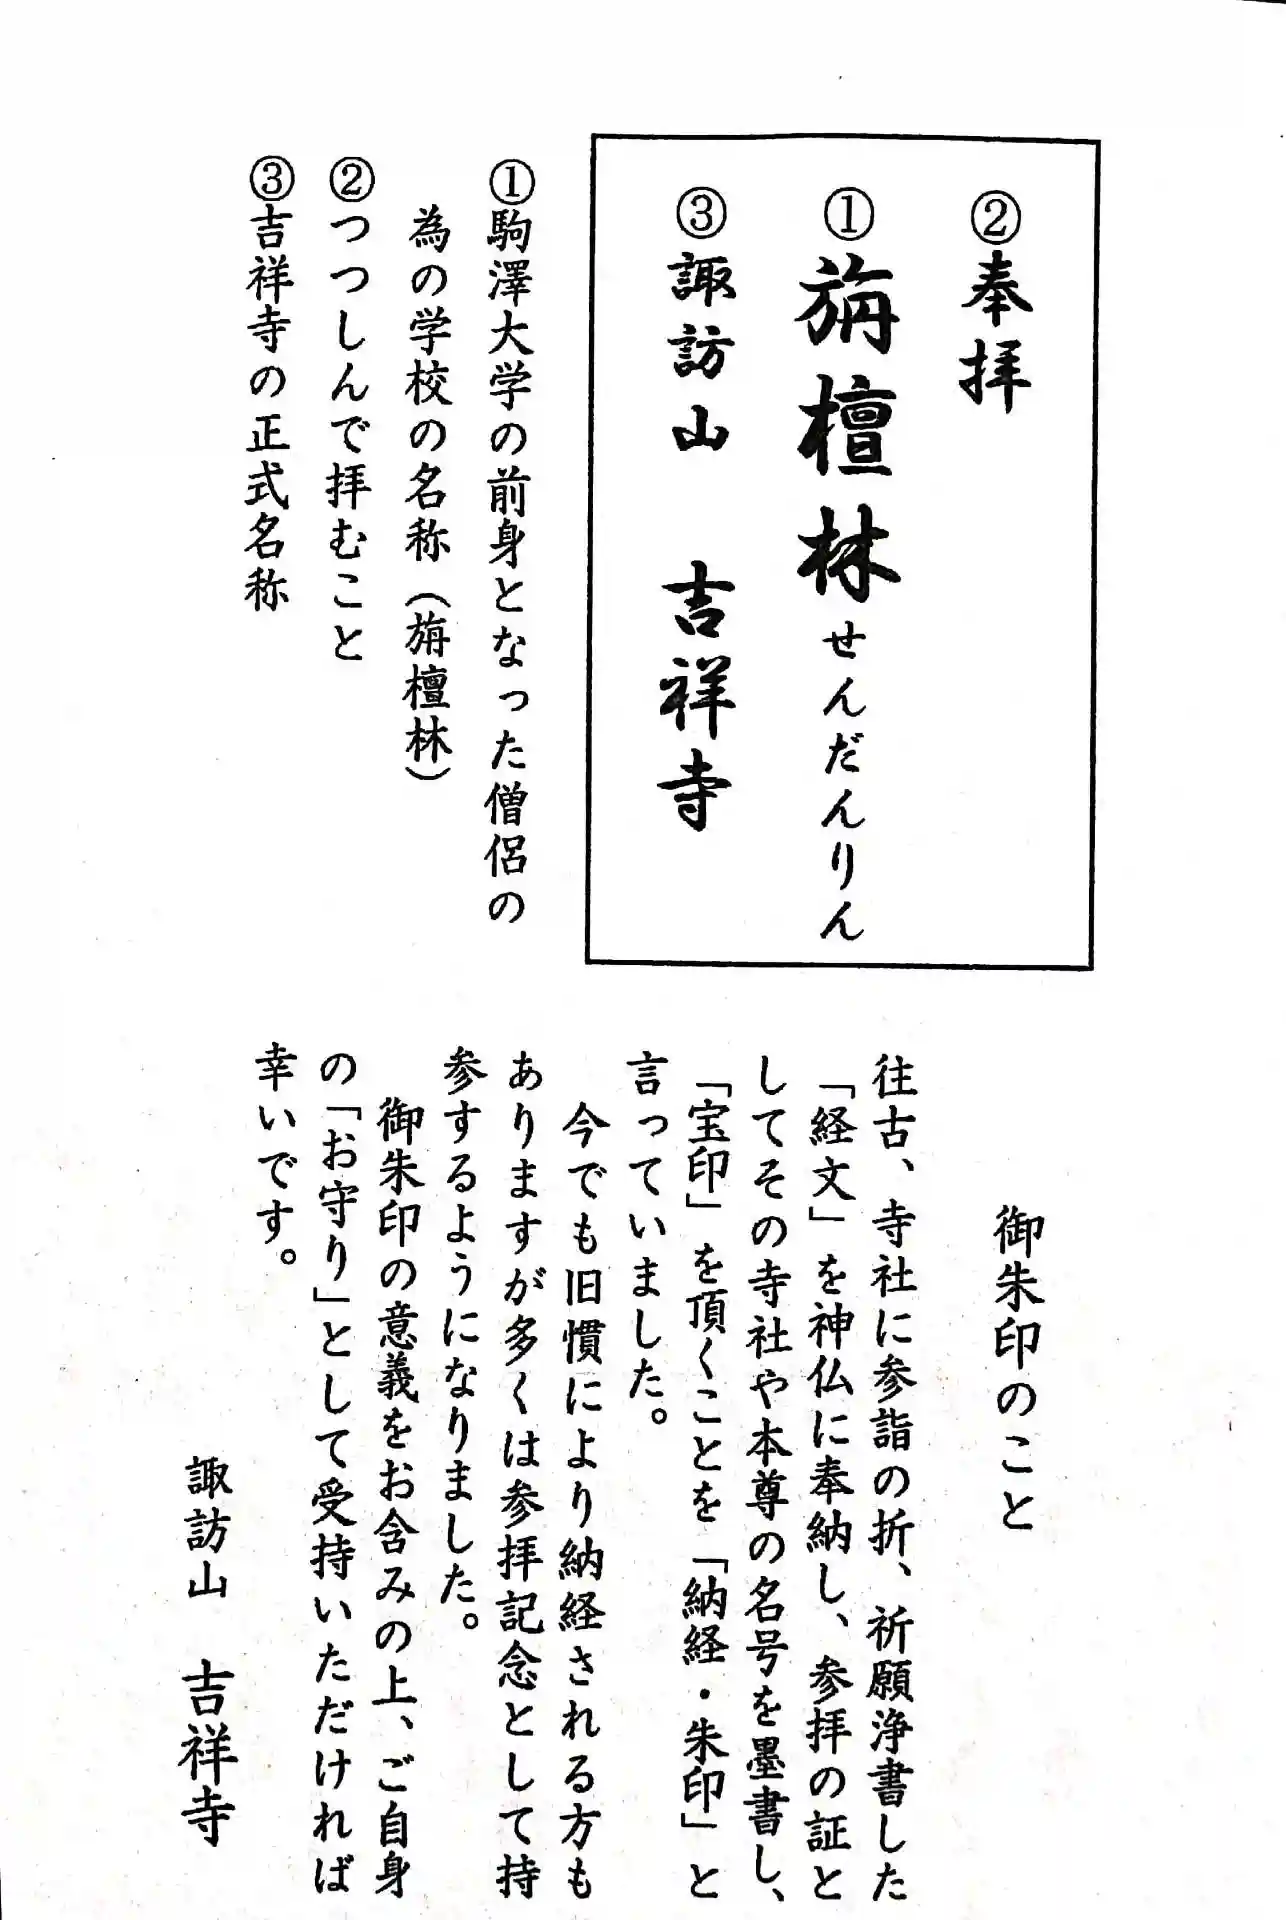 ②奉拝
①旃檀林せんだんりん
③諏訪山　吉祥寺
①駒澤大学の前身となった僧侶の
為の学校の名称（旃檀林）
②つつしんで拝むこと
③吉祥寺の正式名称
御朱印のこと
往古、寺社に参詣の折、祈願浄書した
「経文」を神仏に奉納し、参拝の証と
してその寺社や本尊の名号を墨書し、
「宝印」を頂くことを「納経・朱印」と
言っていました。
今でも旧慣により納経される方も
ありますが多くは参拝記念として持
参するようになりました。
御朱印の意義をお含みの上、ご自身
の「お守り」として受持いただければ
幸いです。
諏訪山　吉祥寺